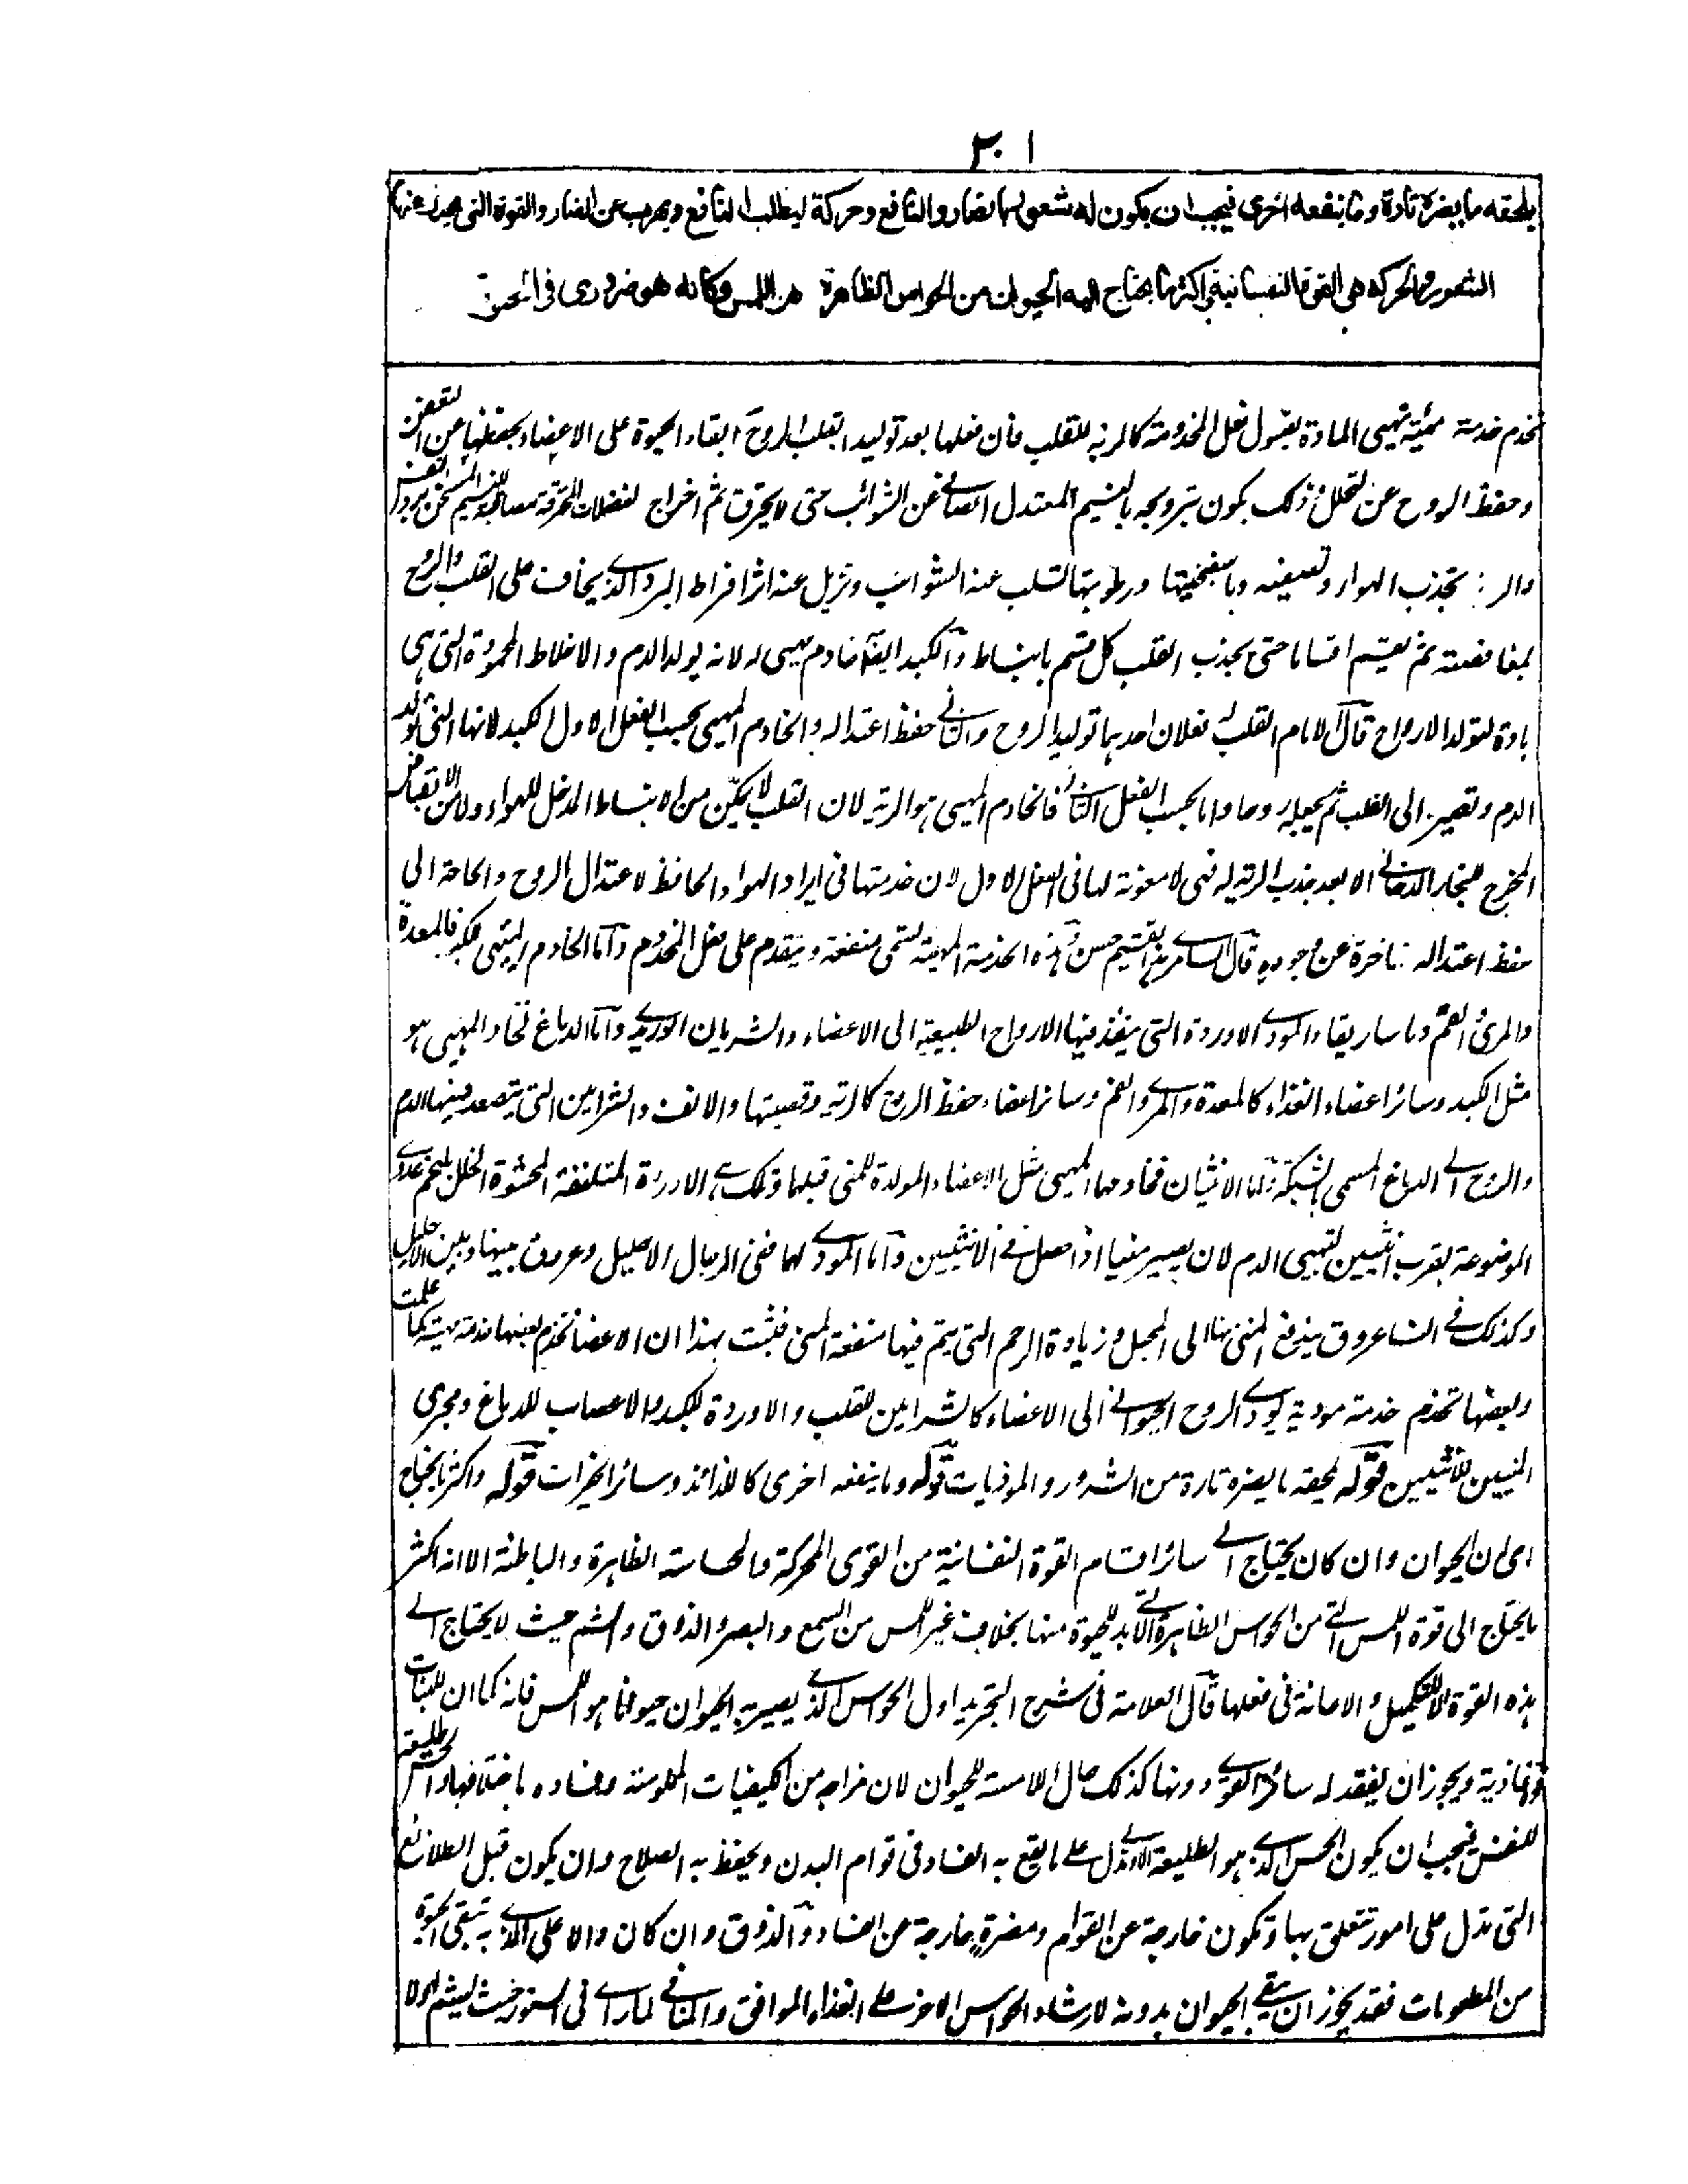 ٣٠١
يلحقه ما يضره تارة وما ينفعه اخرى فيجب ان يكون له شعور بالضار والنافع وحركة ليطلب النافع ويهرب عن الضار والقوة التى يصدر عنها
الشعور والحركه هى القوة النفسانية واكثر ما يحتاج اليه الحيوان من الحواس الظاهرة هو اللمس وكانه هو ضرورى فى ان
تخدم خدمة مهيئة تهيى المادة بقبول فعل المخدومة كالرية للقلب فان فعلها بعد توليد القلب الروح ابقاء الحيوة على الاعضاء بحفظها عن التعفن
وحفظ الروح عن التحلل وذلك يكون بترويحه بالنسيم المعتدل الصافى عن الشوائب حتى لا يحترق ثم اخراج الفضلات المحترقة مصاحبة للنسيم المسخن
والرية تجذب الهواء وتصفيه وباسفنجيتها ورطوبتها تسلب عنه الشوائب وتزيل عنه اثر افراط البرد الذى يخاف على القلب والروح
بمغافصته ثم تقسيم اقساما حتى يجذب القلب كل قسم بانبساط والكبد ايضا خادم مهيى له لانه يولد الدم والاخلاط المحمودة التى هى
مادة لتولد الارواح قال الامام القلب له فعلان احدهما توليد الروح والثانى حفظ اعتداله والخادم المهيى بحسب الفعل الاول الكبد لانها التى تولد
الدم وتصير الى القلب ثم يجعله روحا واما بحسب الفعل الثانى فالخادم المهيى هو الرية لان القلب لا يمكن من الانبساط المدخل للهواء ولا من الانقباض
المخرج للبخار الدخانى الا بعد جذب الرية له فهى لا معونة لها فى الفعل الاول لان خدمتها فى ايراد الهواء الحافظ لاعتدال الروح والحاجة الى
حفظ اعتداله متاخرة عن وجوده قال السامرى هذا تقسيم حسن وهذه الخدمة المهيئة تسمى منفعة وتتقدم على فعل المخدوم واما الخادم المهيى للكبد فالمعدة
والمرئ والفم وماساريقاء والمودى الاوردة التى ينفذ فيها الارواح الطبيعية الى الاعضاء والشريان الوريدى واما الدماغ فخادمه المهيى هو
مثل الكبد وسائر اعضاء الغذاء كالمعدة والمرى والفم وسائر اعضاء حفظ الروح كالرية وقصبتها والانف والشرايين التى يتصعد فيها الدم
والروح الى الدماغ المسمى بالشبكة واما الانثيان فخادمها المهيى مثل الاعضاء المولدة للمنى قبلها وتلك هى الاوردة المتلففة المحشوة الخلل بلحم غددى
الموضوعة بقرب انثيين لتهيى الدم لان يصير منيا اذا حصل فى الانثيين واما المودى لهما ففى الرجال الاحليل وعروق بينها وبين الاحليل
وكذلك فى النساء عروق يندفع المنى بها الى المحبل وزيادة الرحم التى يتم فيها منفعة المنى فثبت بهذا ان الاعضاء تخدم بعضها خدمة مهيئة كما علمت
وبعضها تخدم خدمة مودية تودى الروح الحيوانى الى الاعضاء كالشرايين للقلب والاوردة للكبد والاعصاب للدماغ ومجرى
المنيين للانثيين قوله يلحقه ما يضره تارة من الشرور والموذيات قوله وما ينفعه اخرى كاللذائذ وسائر الخيرات قوله واكثر ما يحتاج
اى ان الحيوان وان كان يحتاج الى سائر اقسام القوة النفسانية من القوى المحركة والحساسة الظاهرة والباطنة الا انه اكثر
ما يحتاج الى قوة اللمس التى من الحواس الظاهرة التى لا بد للحيوة منها بخلاف غير اللمس من السمع والبصر والذوق والشم حيث لا يحتاج الى
هذه القوة الا للتكميل والاعانة فى فعلها قال العلامة فى شرح التجريد اول الحواس الذى يصير به الحيوان حيوانا هو اللمس فانه كما ان للنبات
قوة غاذية ويجوز ان يفقد له سائر القوى دونها كذلك حال اللامسة للحيوان لان مزاجه من الكيفيات الملموسة وفساده باختلافها والحس طليعة
للنفس فيجب ان يكون الحس الذى هو الطليعة الاولى تدل على ما يقع به الفساد فى قوام البدن ويحفظ به الصلاح وان يكون قبل الطلائع
التى تدل على امور تتعلق بها وتكون خارجة عن القوام ومضرة خارجة عن الفساد والذوق وان كان دالا على الذى به تبقى الحيوة
من المطعومات فقد يجوز ان يبقى الحيوان بدونه لارشاد الحواس الاخر على الغذاء الموافق والمنافى لما ترى فى السنور حيث يشم اولا